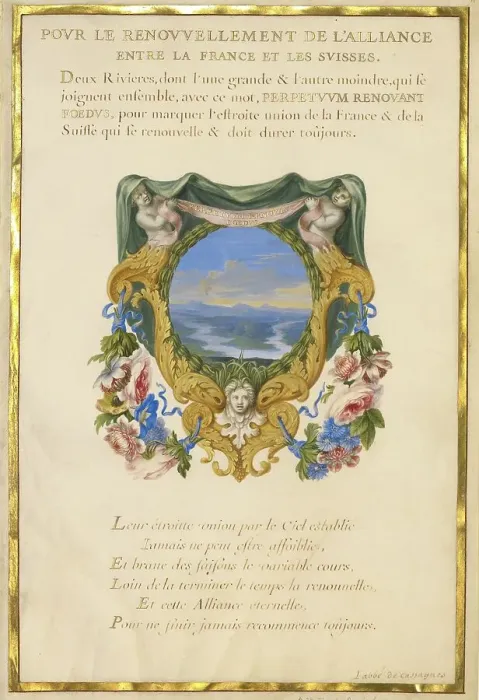 POVR LE RENOVVELLEMENT DE L'ALLIANCE
ENTRE LA FRANCE ET LES SVISSES.
Deux Rivieres, dont l'une grande & l'autre moindre, qui se
joignent ensemble, avec ce mot, PERPETVVM RENOVANT
FOEDVS, pour marquer l'estroite union de la France & de la
Suisse qui se renouvelle & doit durer toûjours.
Leur étroitte union par le Ciel establie
Iamais ne peut estre affoiblie,
Et braue des saisons le variable cours,
Loin de la terminer le temps la renouuelle,
Et cette Alliance eternelle,
Pour ne finir jamais recommence toûjours.
l'abbé de cassagnes